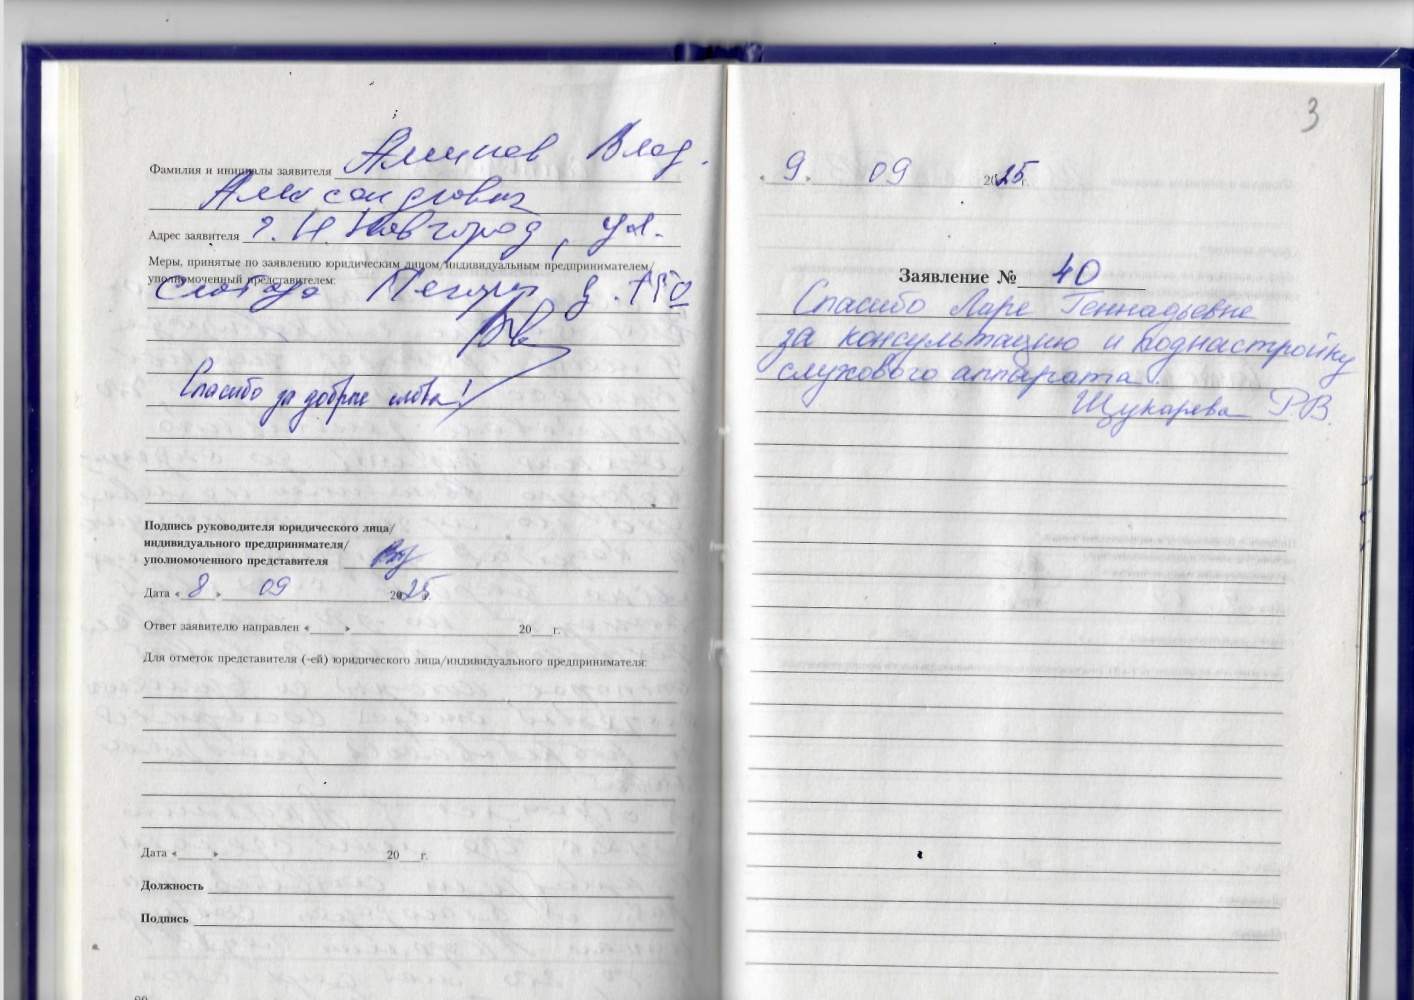 Фамилия и инициалы заявителя Аминов Влад.
Александрович
Адрес заявителя г. Н Новгород, ул.
Меры, принятые по заявлению юридическим лицом/индивидуальным предпринимателем/
уполномоченный представителем:
слобода Печеры д.
Спасибо за добрые слова!
Подпись руководителя юридического лица/
индивидуального предпринимателя/
уполномоченного представителя
Дата « 8 » 09 2025 г.
Ответ заявителю направлен «____»____ 20__ г.
Для отметок представителя (-ей) юридического лица/индивидуального предпринимателя:
Дата «____»____ 20__ г.
Должность
Подпись
3
« 9 » 09 2025 г.
Заявление № 40
Спасибо Ларе Геннадьевне
за консультацию и поднастройку
слухового аппарата.
Щукарева Р.В.